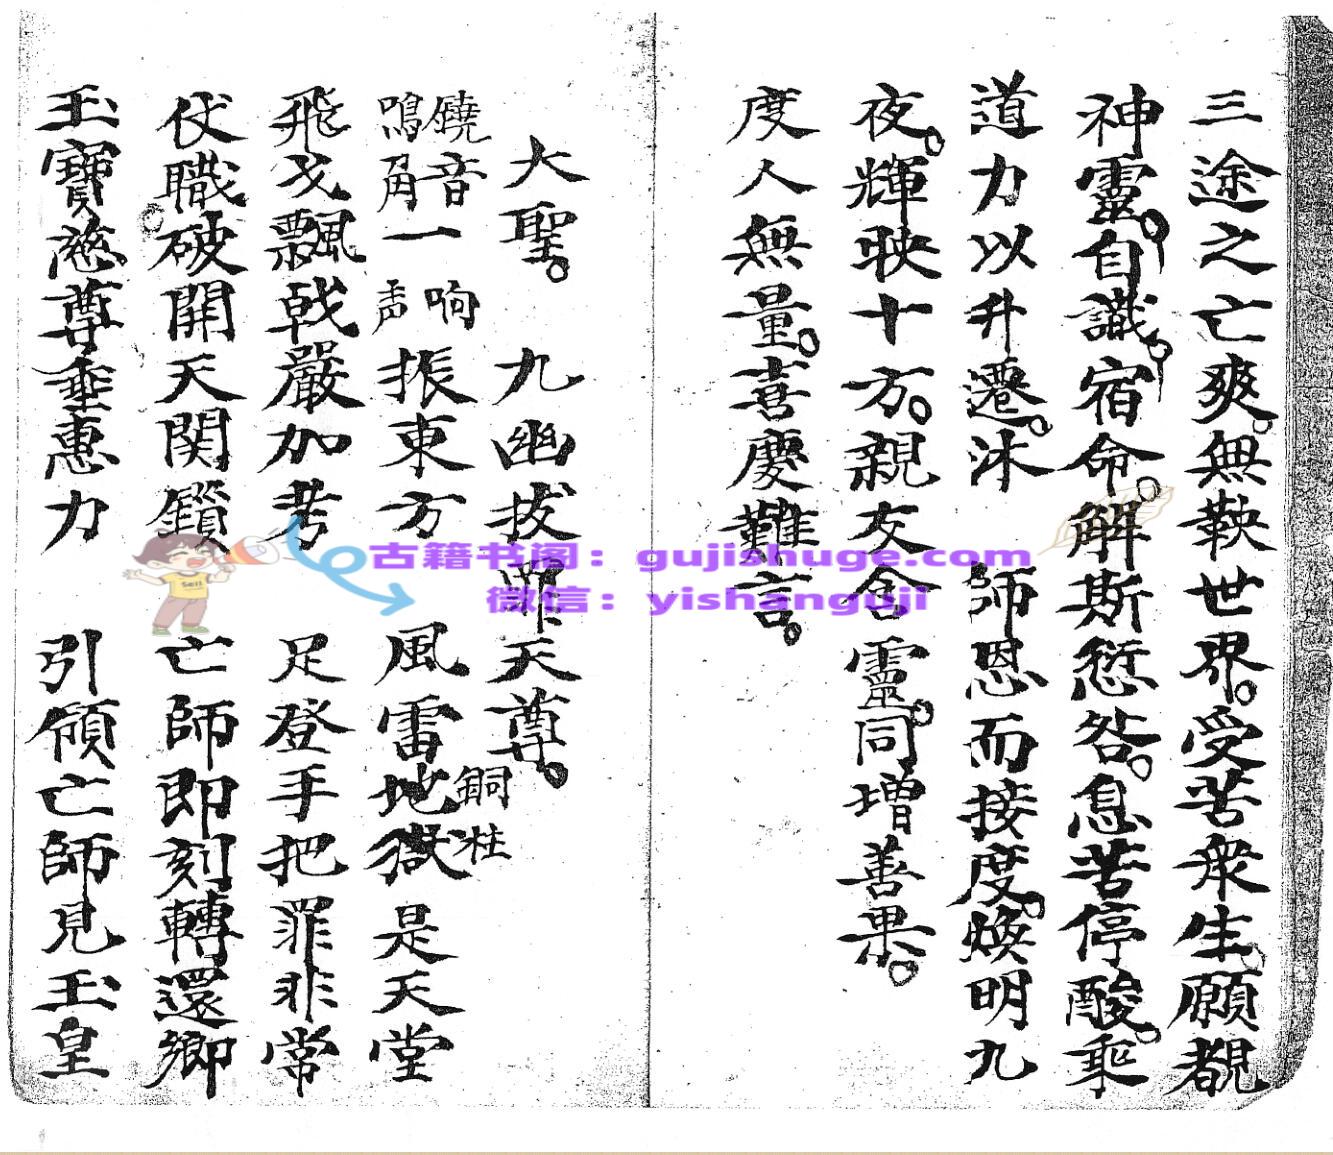 三途之亡爽。無鞅世界。受苦衆生。願覩
神靈。自識。宿命。解斯愆咎。息苦停酸。乘
道力以升遷。沐 師恩而接度。煥明九
夜。輝映十方。親友含靈。同增善果。
度人無量。喜慶難言。
大聖。 九幽拔罪天尊。
鐃音一响
鳴角一声
振東方 風雷地獄是天堂
銅柱
飛戈飄戟嚴加考 足登手把罪非常
伏職破開天関鎖 亡師即刻轉還鄉
玉寶慈尊垂惠力 引領亡師見玉皇
古籍书阁：gujishuge.com
微信：yishanguji
Sell